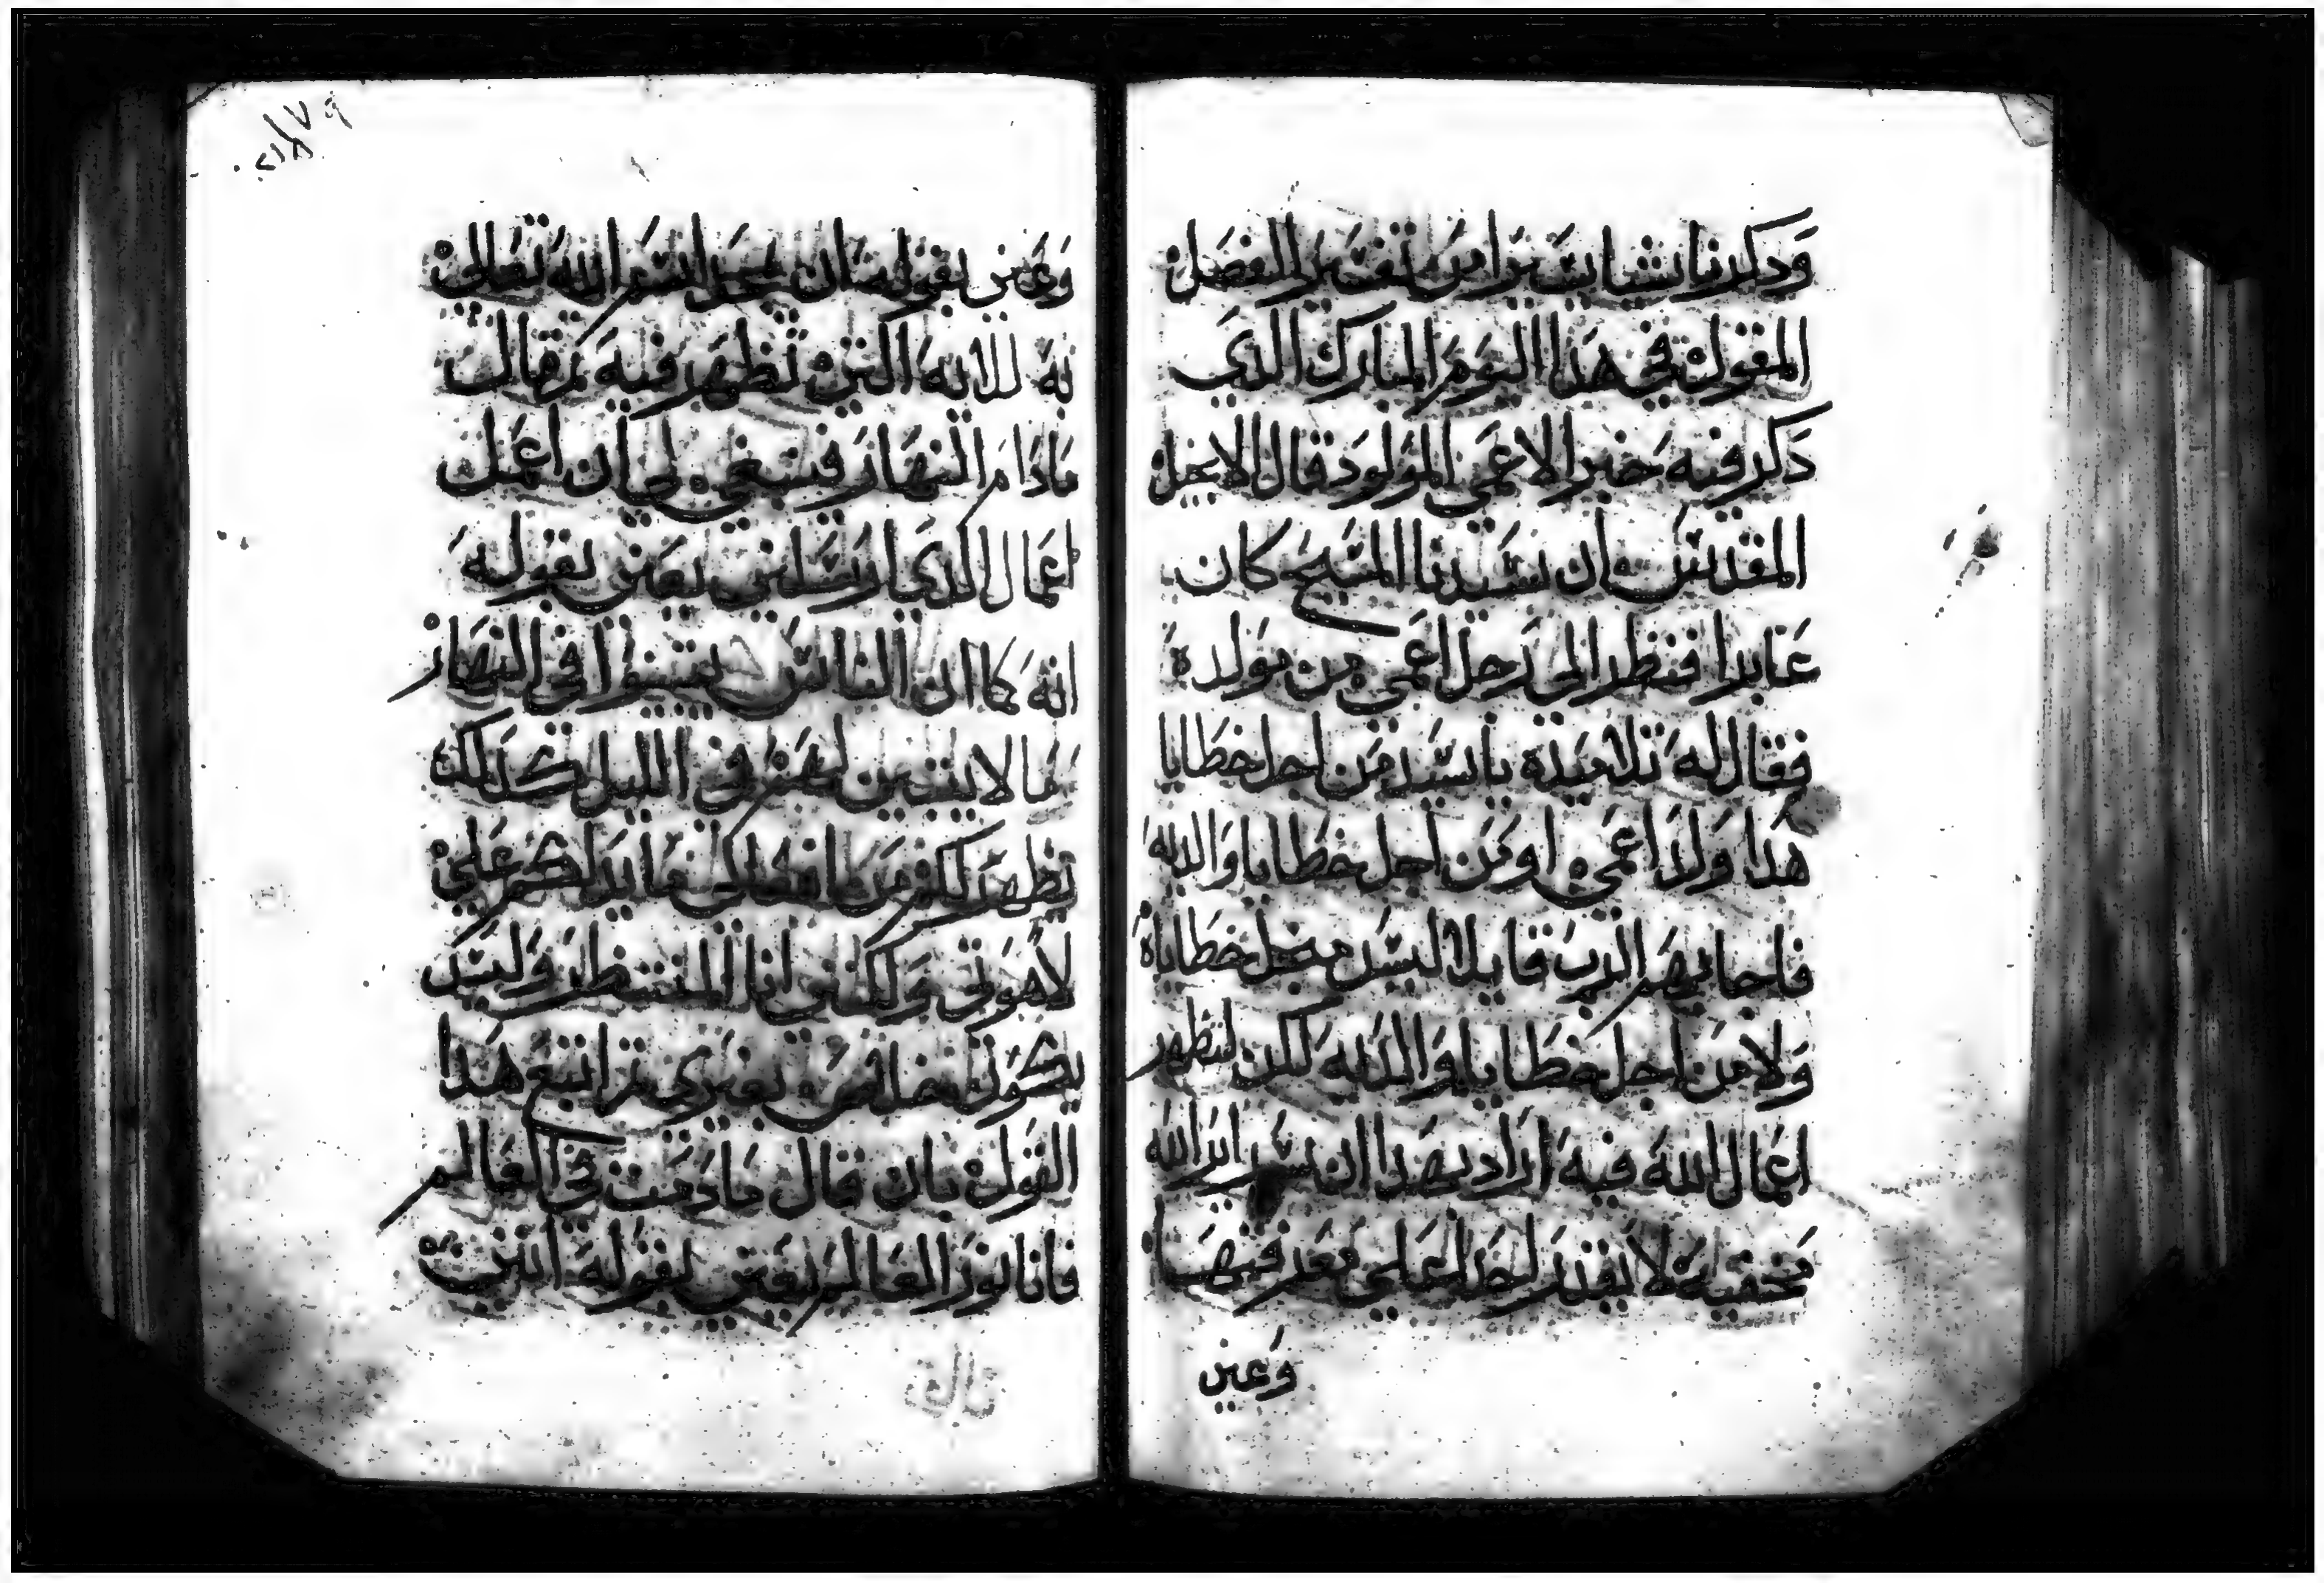 وذكرنا شيا يسيرا من تفسير الفصل
المقول في هذا اليوم المبارك الذي
ذكر فيه خبر الاعمى المولود قال الانجيل
المقدس ان سيدنا المسيح كان
عابرا فنظر الى رجل اعمى من مولده
فقال له تلاميذه يا سيد من اجل خطايا
هذا ولد اعمى او من اجل خطايا والديه
فاجابهم الرب قايلا ليس من اجل خطاياه
ولا من اجل خطايا والديه لكن لتظهر
اعمال الله فيه اراد بهذا ان سراير الله
مخفيه لا يقدر احد على معرفتها
وعني
وعني بقوله ان يجل اسم الله تعالى
به للايه التي تظهر فيه ثم قال
ما دام النهار فينبغي لي ان اعمل
اعمال الذي ارسلني يعني بقوله
انه كما ان الناس في النهار
ما لا لهم في الليل كذلك
تظهر لكم من افعالي ما يدلكم على
لاهوتي ولكنني انا المنتظر وليس
يكون لغيري ثم اتبع هذا
القول بان قال ما دمت في العالم
فانا نور العالم يعني بقوله انني